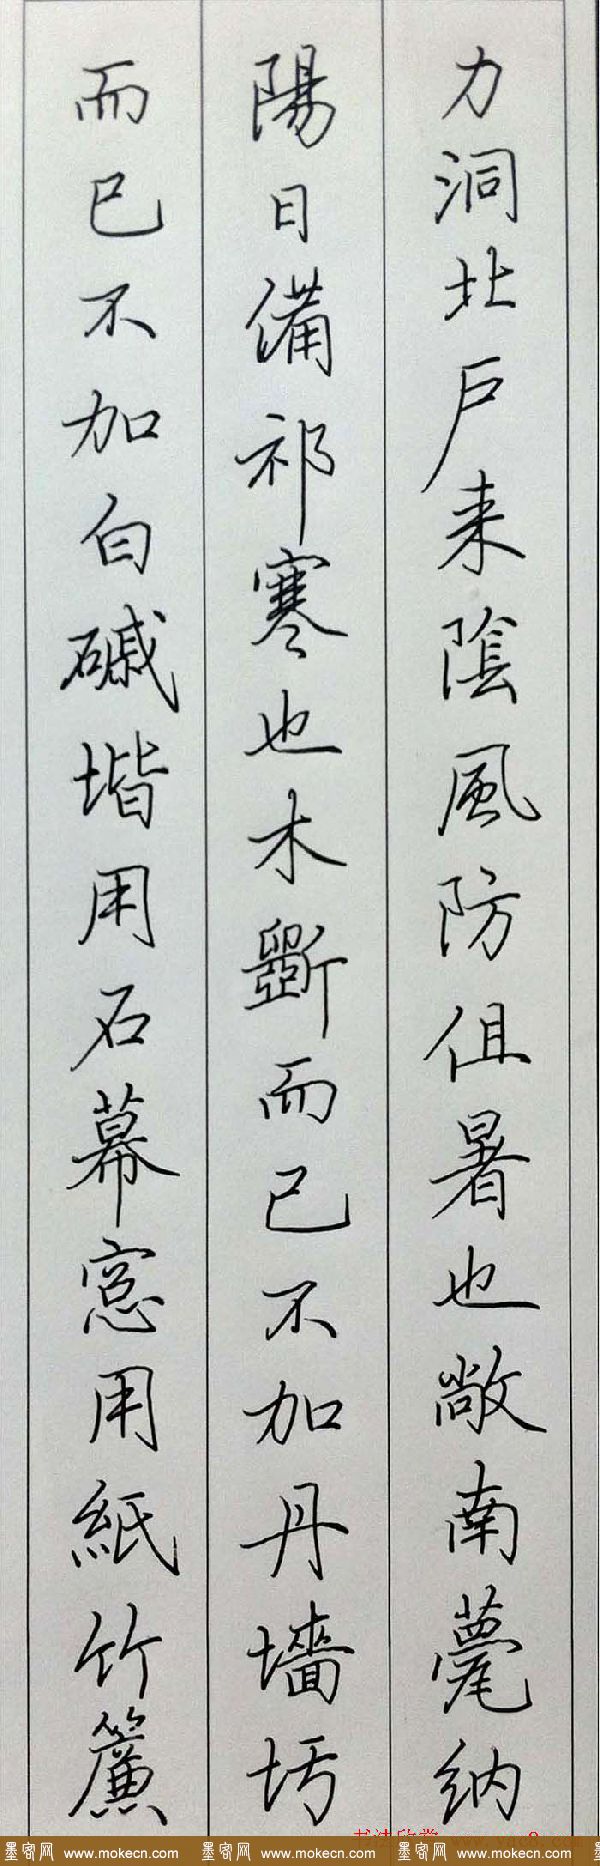 力洞北戶来陰風防徂暑也敞南甍纳
陽日備祁寒也木斲而已不加丹墻圬
而已不加白磩堦用石幕窓用紙竹簾
墨客网 www.mokecn.com 墨客网 www.mokecn.com 墨客网 www.mokecn.com